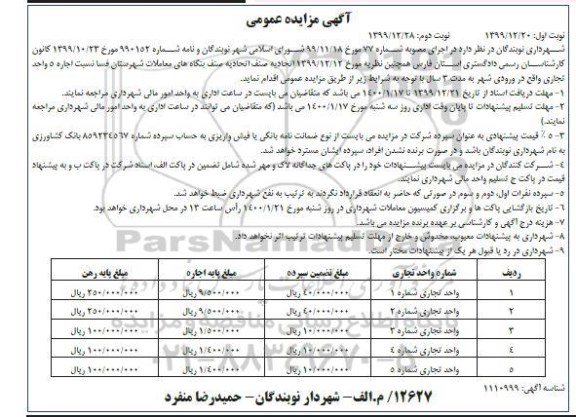 آگهی مزایده عمومی
نوبت اول: ۱۳۹۹/۱۲/۲۰ نوبت دوم: ۱۳۹۹/۱۲/۲۸
شـهرداری نوبندگان در نظر دارد در اجرای مصوبه شـماره ۷۷ مورخ ۹۹/۱۱/۱۸ شـورای اسلامی شهر نوبندگان و نامه شماره ۹۹۰۱۵۲ مورخ ۱۳۹۹/۱۰/۲۳ کانون
کارشناسـان رسمی دادگستری استان فارس همچنین نظریه مورخ ۱۳۹۹/۱۲/۱۲ اتحادیه صنف اتحادیه صنف بنگاه های معاملات شهرستان فسا نسبت اجاره ۵ واحد
تجاری واقع در ورودی شهر به مدت ۳ سال با توجه به شرایط زیر از طریق مزایده عمومی اقدام نماید.
۱- مهلت دریافت اسناد از تاریخ ۱۳۹۹/۱۲/۲۱ تا ۱۴۰۰/۱/۱۷ می باشد که متقاضیان می بایست در ساعت اداری به واحد امور مالی شهرداری مراجعه نمایند.
۲- مهلت تسلیم پیشنهادات تا پایان وقت اداری روز سه شنبه مورخ ۱۴۰۰/۱/۱۷ می باشد (که متقاضیان می توانند در ساعت اداری به واحد امور مالی شهرداری مراجعه
نمایند.)
۳- ۵ ٪ قیمت پیشنهادی به عنوان سپرده شرکت در مزایده می بایست از نوع ضمانت نامه بانکی یا فیش واریزی به حساب سپرده شماره ۸۵۹۲۳۴۵۶۷ بانک کشاورزی
به نام شهرداری نوبندگان باشد و در صورت برنده نشدن افراد، سپرده ایشان مسترد خواهد شد.
۴- شـرکت کنندگان در مزایده می بایست پیشـنهادات خود را در پاکت های جداگانه لاک و مهر شده شامل تضمین در پاکت الف، اسناد شرکت در پاکت ب و به پیشنهاد
قیمت در پاکت ج تسلیم واحد مالی شهرداری نمایند.
۵- سپرده نفرات اول، دوم و سوم در صورتی که حاضر به انعقاد قرارداد نگردند به ترتیب به نفع شهرداری ضبط خواهد شد.
۶- تاریخ بازگشایی پاکت ها و برگزاری کمیسیون معاملات شهرداری در روز شنبه مورخ ۱۴۰۰/۱/۲۱ رأس ساعت ۱۳ در محل شهرداری خواهد بود.
۷- هزینه درج آگهی و کارشناسی بر عهده برنده مزایده می باشد.
۸- شهرداری به پیشنهادات معیوب، مخدوش و خارج از مهلت تسلیم پیشنهادات ترتیب اثر نخواهد داد.
۹- شهرداری در رد یا قبول هر یک از پیشنهادات مختار است.
ردیف شماره واحد تجاری مبلغ تضمین سپرده مبلغ پایه اجاره مبلغ پایه رهن
۱ واحد تجاری شماره ۱ ۴۰/۰۰۰/۰۰۰ ریال ۹/۵۰۰/۰۰۰ ریال ۲۵۰/۰۰۰/۰۰۰ ریال
۲ واحد تجاری شماره ۲ ۴۰/۰۰۰/۰۰۰ ریال ۹/۵۰۰/۰۰۰ ریال ۲۵۰/۰۰۰/۰۰۰ ریال
۳ واحد تجاری شماره ۳ ۱۰/۰۰۰/۰۰۰ ریال ۱/۵۰۰/۰۰۰ ریال ۱۰۰/۰۰۰/۰۰۰ ریال
۴ واحد تجاری شماره ۴ ۱۰/۰۰۰/۰۰۰ ریال ۱/۴۰۰/۰۰۰ ریال ۱۰۰/۰۰۰/۰۰۰ ریال
۵ واحد تجاری شماره ۵ ۱۰/۰۰۰/۰۰۰ ریال ۱/۴۰۰/۰۰۰ ریال ۱۰۰/۰۰۰/۰۰۰ ریال
شناسه آگهی: ۱۱۱۰۹۹۹
۱۲۶۲۷/ م.الف- شهردار نوبندگان- حمیدرضا منفرد
ParsNamadData
۰۲۱-۸۸۳۴۹۶۷۰-۵